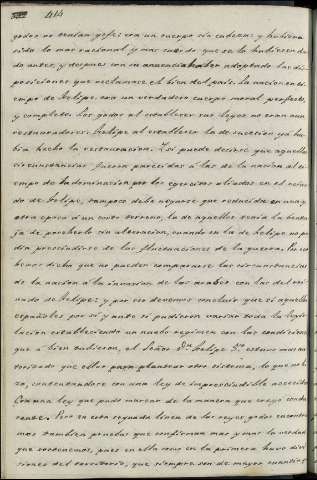 414
godos no tenian gefe: era un cuerpo sin cabeza: y hubiera
sido lo mas racional y mas cuerdo que se la hubieren da-
do antes, y despues con su anuencia haber adoptado las dis-
posiciones que reclamase el bien del pais. La nacion en ti-
empo de Felipe era un verdadero cuerpo moral perfecto,
y completo. Los godos al establecer sus leyes no eran aun
restauradores: Felipe al establecer la de sucesion, ya ha-
bia hecho la restauracion. Asi puede decirse que aquellas
circunstancias fueron parecidas a las de la nacion al ti-
empo de la dominacion por los egercitos aliados en el reina-
do de Felipe, tampoco debe negarse que reducida en una y
otra epoca á un corto terreno, la de aquellos tenia la venta-
ja de poseherlo sin alteracion, cuando en la de Felipe no po-
dia prescindirse de las fluctuaciones de la guerra. Por eso
hemos dicho que no pueden compararse las circunstancias
de la nacion a la invasion de los arabes con las del rei-
nado de Felipe: y por eso debemos concluir que si aquellos
españoles por si y ante si pudieron variar toda la legis-
lacion estableciendo un nuevo regimen con las condiciones
que a bien tubieron, el Señor Dn Felipe 5º estuvo mas au-
torizado que ellos para plantear otro sistema, lo que no hi-
zo, contentandose con una ley de imprescindible necesidad
Con una ley que pudo marcar de la manera que creyó conve-
niente. Pero en esta segunda linea de los reyes godos encontra-
mos tambien pruebas que confirman mas y mas la verdad
que sostenemos, pues en ella como en la primera hubo divi-
siones del territorio, que siempre son de mayor cuantia q.e